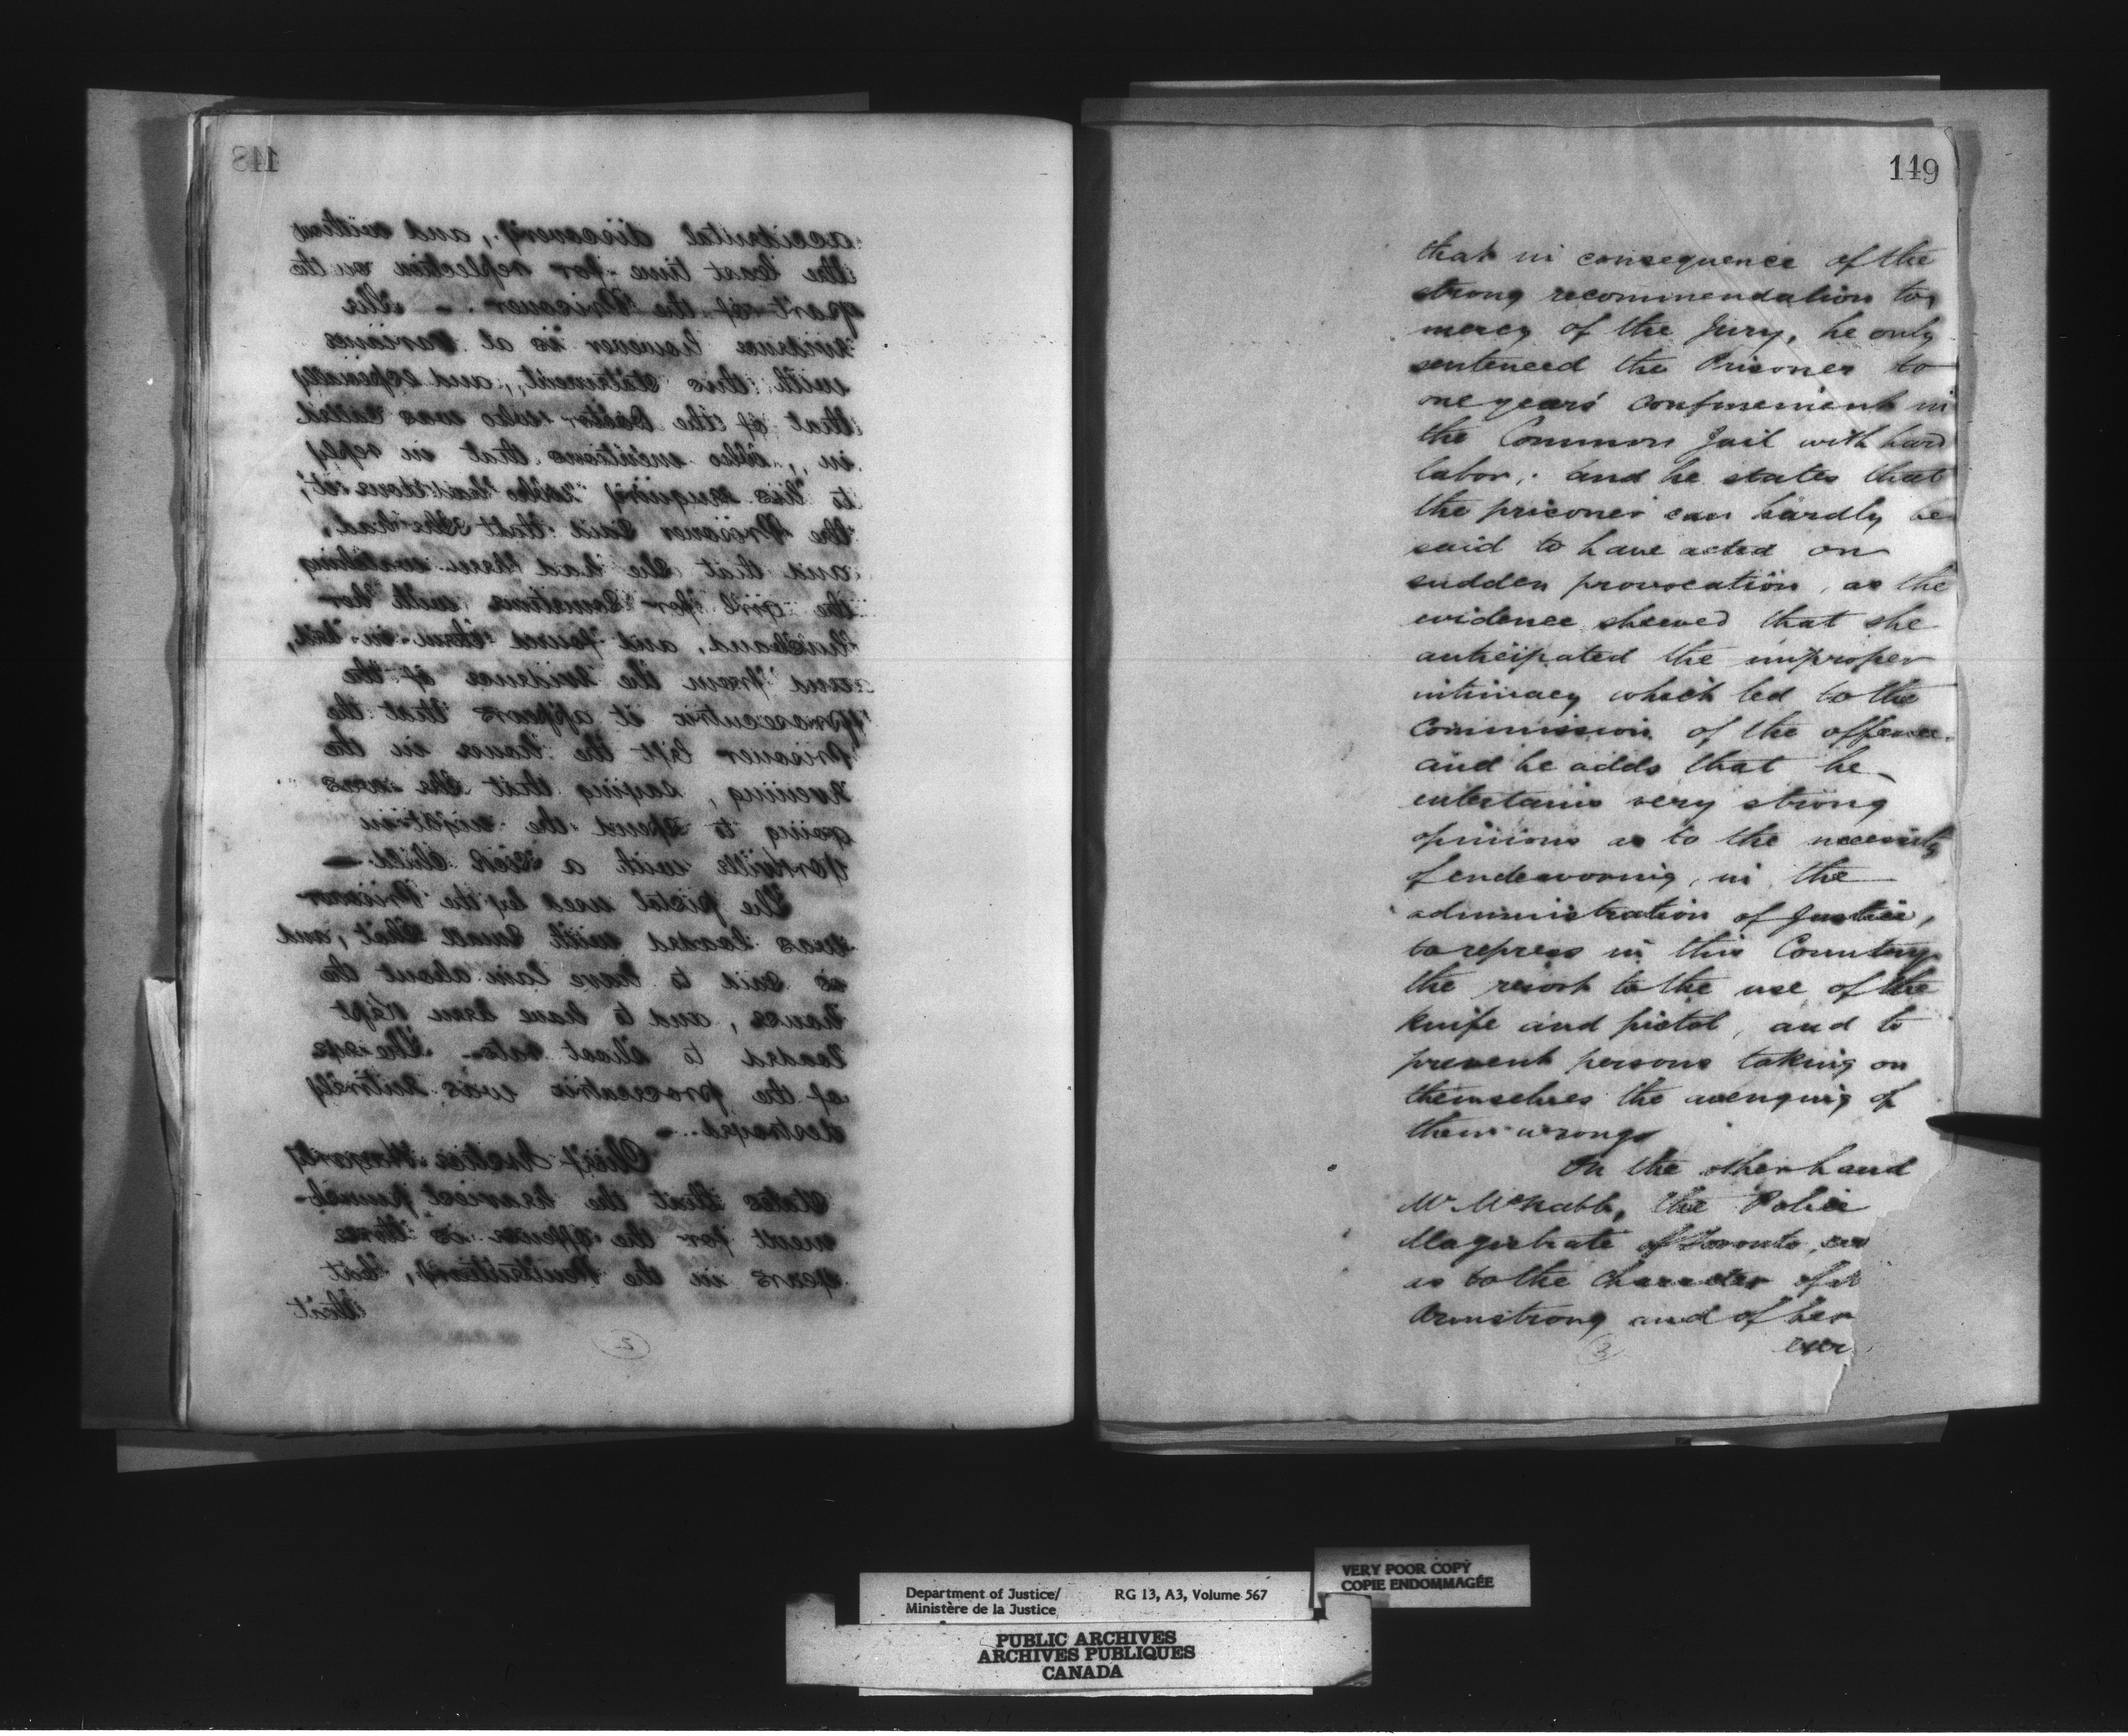 148
accidental discovery, and without
the least time for reflection on the
part of the Prisoner. - The
evidence however is at variance
with this statement, and especially
that of the Doctor who was called
in, who mentions that in reply
to his enquiry "who had done it",
the Prisoner said that she had,
and that she had been watching
the girl for sometime with her
husband, and found them in bed,
and from the evidence of the
prosecutrix it appears that the
prisoner left the house in the
evening, saying that she was
going to spend the night in
Yorkville with a sick child -
The pistol used by the Prisoner
was loaded with small shot, and
is said to have lain about the
house, and to have been kept
loaded to shoot rats - The eye
of the prosecutrix was entirely
destroyed. -
Chief Justice Hagarty
states that the heaviest punish-
ment for the offence is three
years in the Penitentiary, but
that
2
149
that in consequence of the
strong recommendation to
mercy of the Jury, he only
sentenced the Prisoner to
one years' confinement in
the Common Jail with hard
labor; and he states that
the prisoner can hardly be
said to have acted on
sudden provocation, as the
evidence shewed that she
anticipated the improper
intimacy which led to the
Commission of the offence.
and he adds that he
entertains very strong
opinions as to the necessity
of endeavoring, in the
administration of Justice,
to repress in this Country
the resort to the use of the
knife and pistol, and to
prevent persons taking on
themselves the avenging of
their wrongs
On the other hand
Mr McNabb, the Police
Magistrate of Toronto,
as to the Character of
Armstrong and of her
3
Department of Justice/ RG 13, A3, Volume 567
Ministère de la Justice
VERY POOR COPY
COPIE ENDOMMAGÉE
PUBLIC ARCHIVES
ARCHIVES PUBLIQUES
CANADA